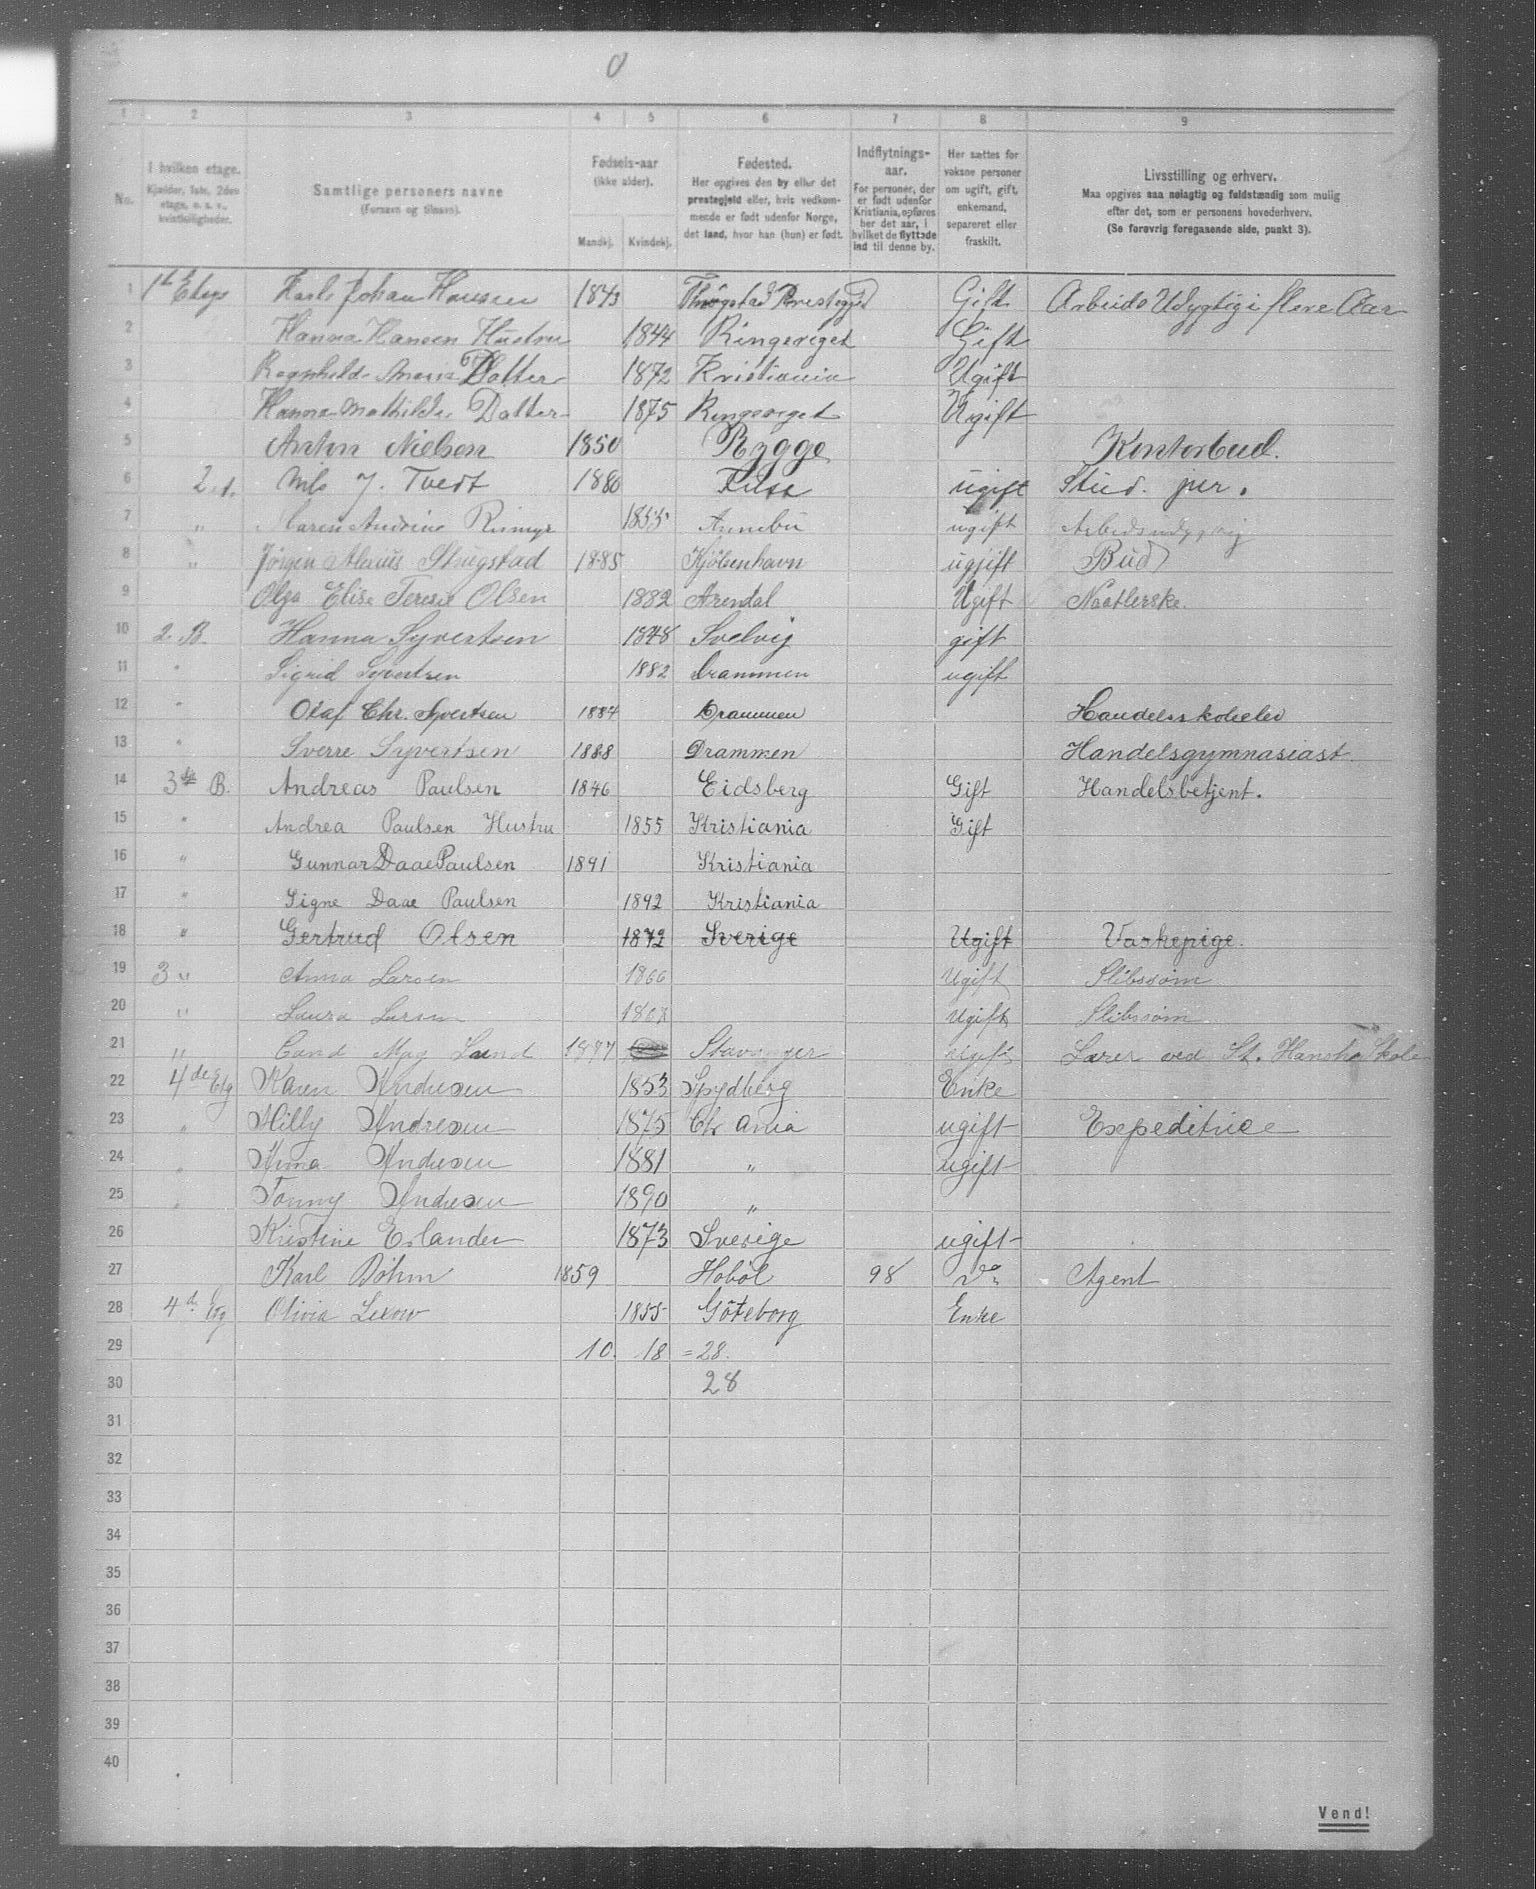 1 2 3 4 5 6 7 8 9
No. I hvilken etage. Kjælder, 1ste, 2den etage, o. s. v., kvistleiligheder. Samtlige personers navne (Fornavn og tilnavn). Fødsels-aar (ikke alder). Mandkj. Kvindekj. Fødested. Her opgives den by eller det prestegjeld eller, hvis vedkommende er født udenfor Norge, det land, hvor han (hun) er født. Indflytningsaar. For personer, der er født udenfor Kristiania, opføres her det aar, i hvilket de flyttede ind til denne by. Her sættes for voksne personer om ugift, gift, enkemand, separeret eller fraskilt. Livsstilling og erhverv. Maa opgives saa nøiagtig og fuldstændig som mulig efter det, som er personens hovederhverv. (Se forøvrig foregaaende side, punkt 3).
1 1st Etage Karl Johan Hansen 1843 Gift Arbeids Udygtig i flere Aar
2 Hanna Hansen Hustru 1844 Ringeriget Gift
3 Ragnhilde Datter 1872 Kristiania Ugift
4 Hanna Mathilde Datter 1875 Ringeriget Ugift
5 Anton Nielsen 1850 Rygge Kontorbud.
6 2. Nils J. Tvedt 1880 Fuse ugift Stud. jur.
7 " Maren 1855 Annebu ugift
8 " Jørgen 1885 Kjøbenhavn ugjift Bud
9 Olga Elise Terese Olsen 1882 Arendal Ugift
10 2. B. Hanna Syvertsen 1848 Svelvig gift
11 " Sigrid Syvertsen 1882 Drammen ugift
12 " Olaf Chr. Syvertsen 1884 Drammen Handelsskoleelev
13 " Sverre Syvertsen 1888 Drammen Handelsgymnasiast.
14 3die B. Andreas Paulsen 1846 Eidsberg Gift Handelsbetjent.
15 " Andrea Paulsen Hustru 1855 Kristiania Gift
16 " Gunnar Daae Paulsen 1891 Kristiania
17 " Signe Daae Paulsen 1892 Kristiania
18 " Gertrud Olsen 1872 Sverige Ugift Vaskepige.
19 3 " Anna Larsen 1866 Ugift Slibssøm
20 " Laura Larsen Ugift Slibssøm
21 " Cand Mag Lund Stavanger ugift Lærer ved St. Skole
22 4de Etg Karen Andresen 1853 Spydberg Enke
23 " Milly Andresen 1875 Chr ania ugift Expeditrice
24 " Anna Andresen 1881 " ugift
25 " Andresen 1890 "
26 Kristine Erlander 1873 Sverige ugift
27 Karl Bøhm 1859 Hobøl 98 Do Agent
28 4de Etg Olivia Lexow 1855 Göteborg Enke
29 10. 18 = 28.
30 28
31
32
33
34
35
36
37
38
39
40
Vend!